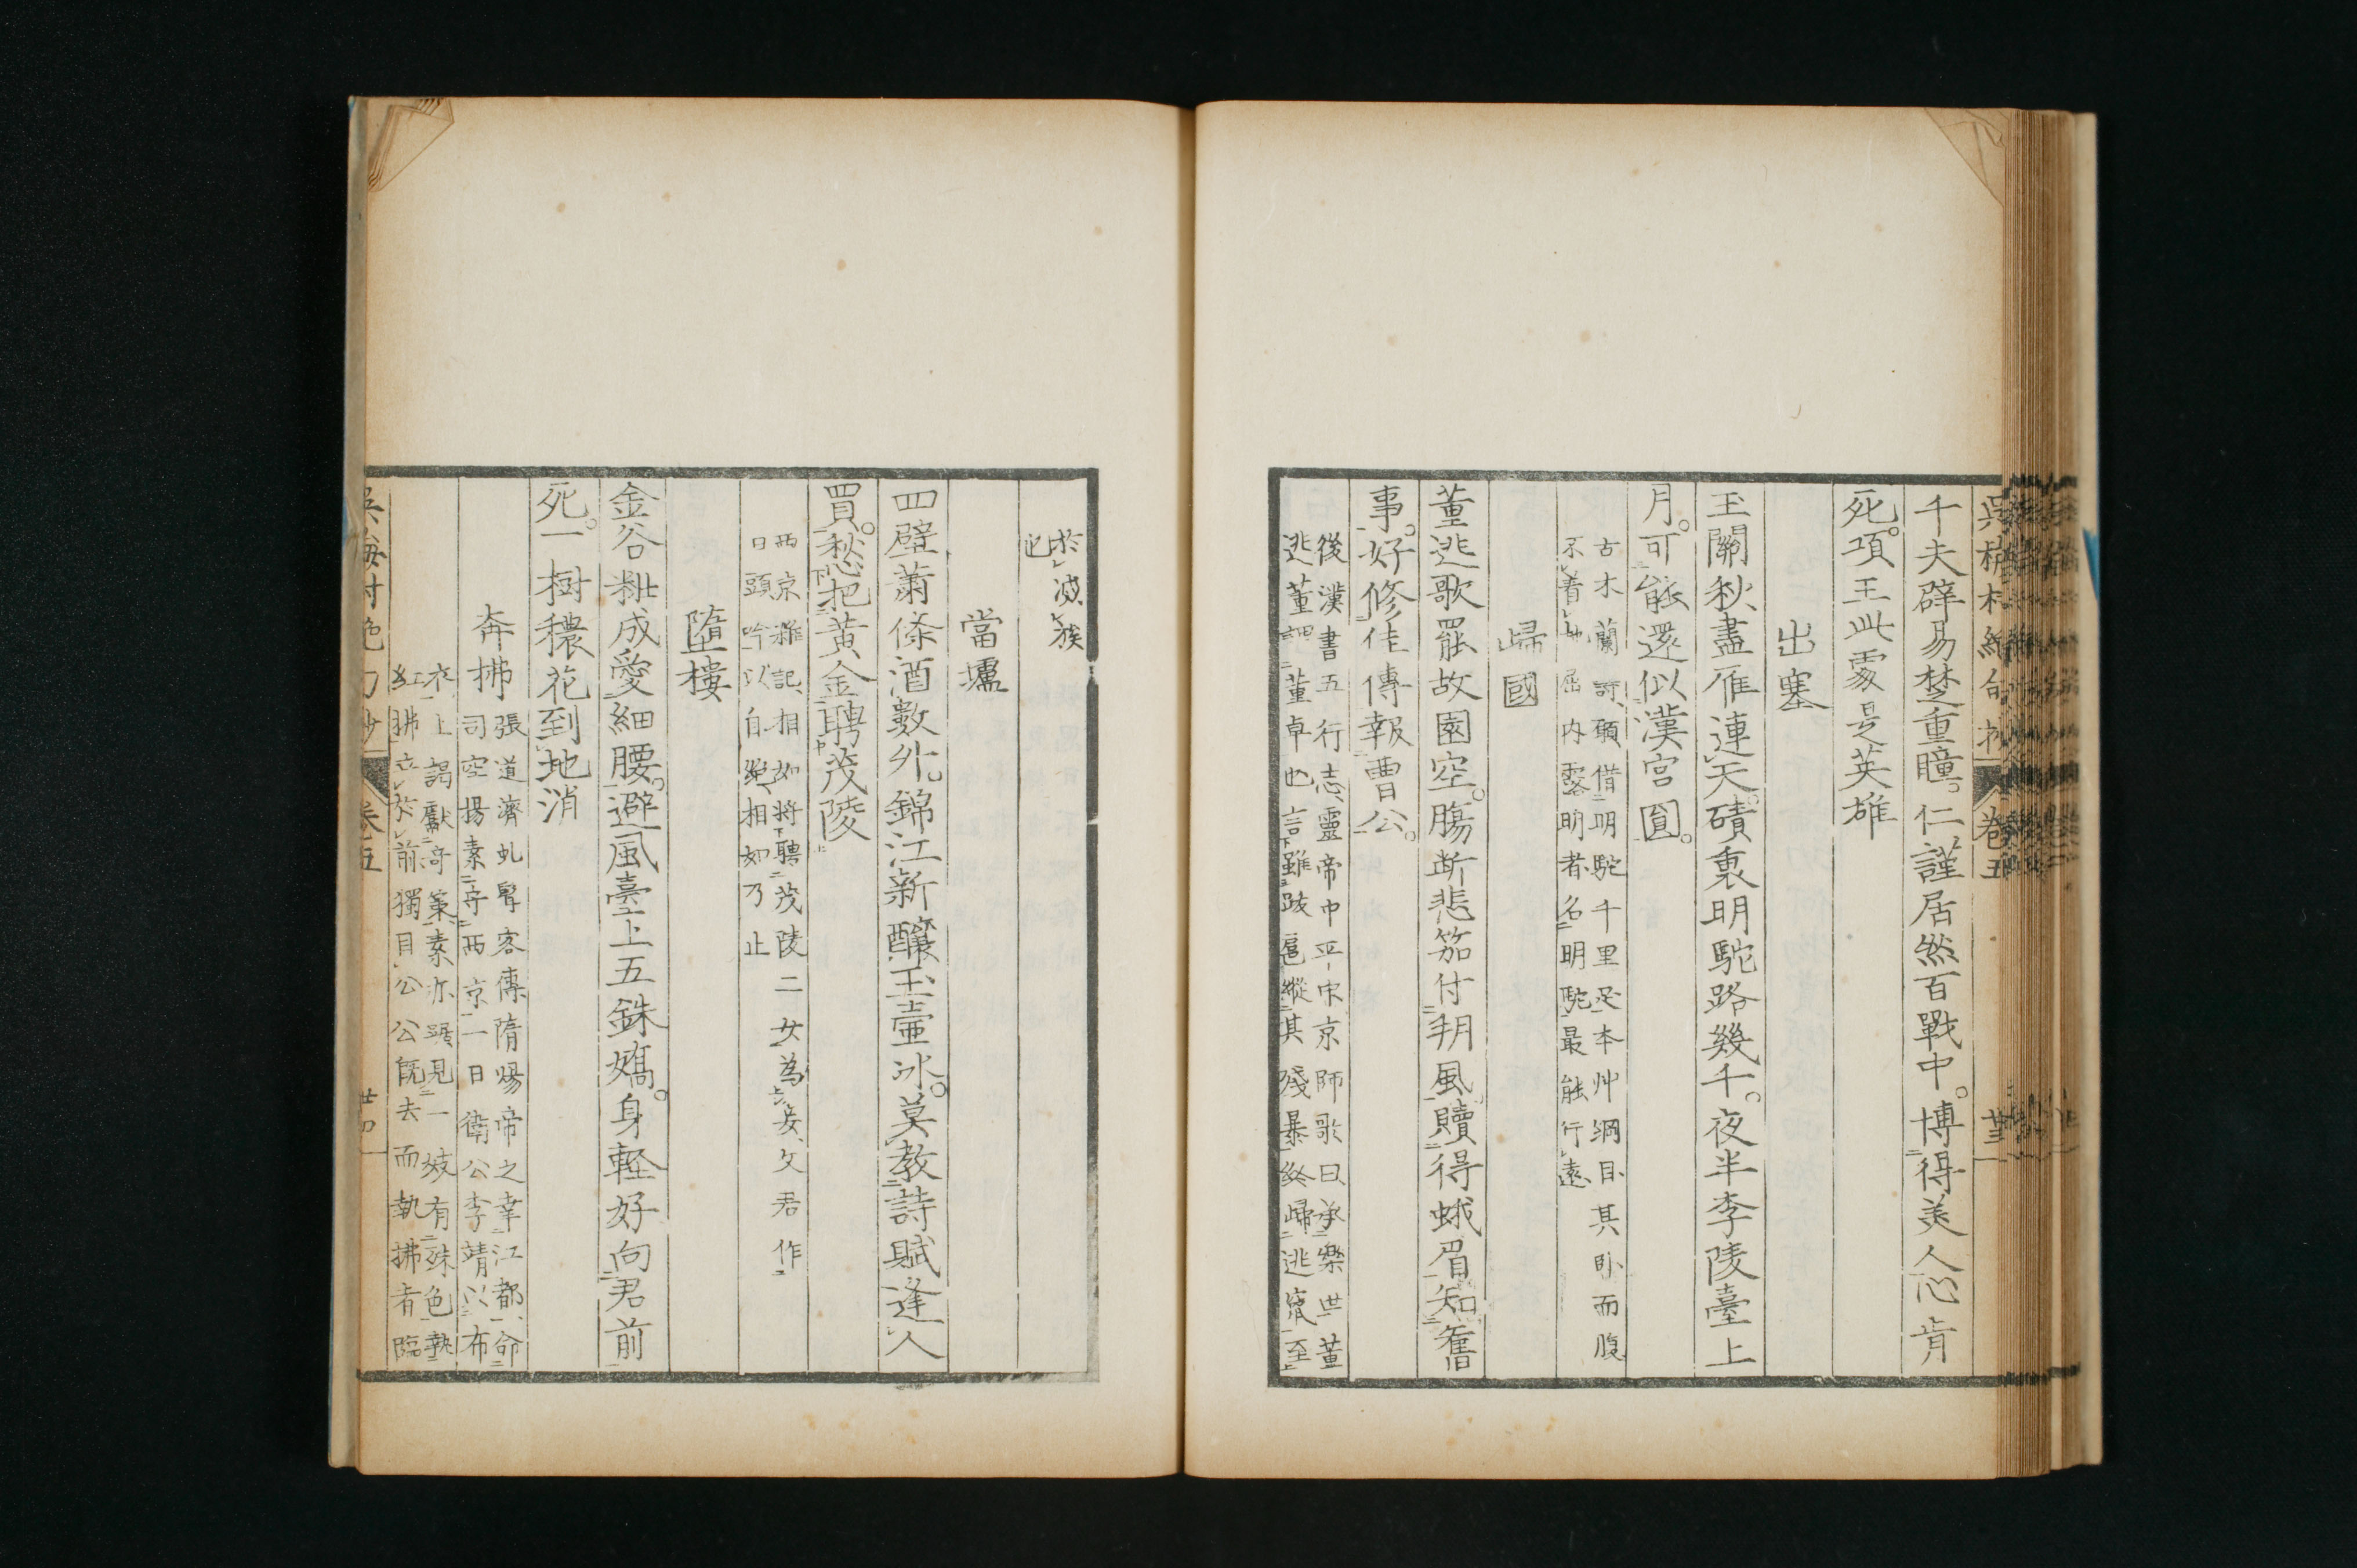 千夫辟易楚重瞳。仁謹居然百戰中。博得美人心肯
死。項王此處是英雄
出塞
玉關秋盡雁連天。磧裏明駝路幾千。夜半李陵臺上
月。可能還似漢宮圓。
古木蘭詩、願借明駝千里足、本艸綱目其卧而腹
不着地屈内露明者名明駝最能行遠
歸國
董逃歌罷故園空。腸断悲笳付朔風。贖得蛾眉知舊
事。好修佳傳報曹公。
後漢書五行志、靈帝中平中京師歌曰、承樂世董
逃董謂董卓也言雖跋扈縱其殘暴終歸逃竄至
於滅族
也
當壚
四壁蕭條酒數外。錦江新釀玉壷冰。莫教詩賦逢人
買。愁把黃金聘茂陵
西京雜記、相如将聘茂陵二女為妾、文君作
白頭吟以自絶、相如乃止
墮樓
金谷粧成愛細腰。避風臺上五銖嬌。身輕好向君前
死。一樹穠花到地消
奔拂
張道濟虬髯客傳隋煬帝之幸江都、命
司空楊素守西京一日衛公李靖以布
衣上謁獻奇策、素亦踞見一妓有殊色執
紅拂立於前獨目公公既去而執拂者臨
卷五
卷五